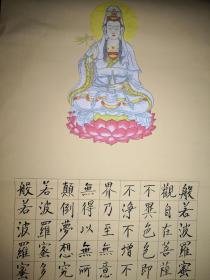 般若波羅蜜
觀自在菩薩
不異色色即
不淨不增不
界乃至無意
無得以無所
顛倒夢想究
若波羅蜜多
般若波羅蜜